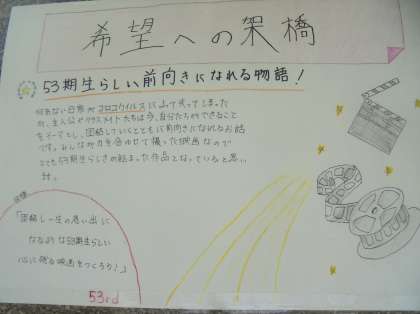 希望への架橋
53期生らしい前向きになれる物語！
何気ない日常がコロコウイルスによって失ってしまった
が、主人公やクラスメイトたちは今、自分たちができること
をテーマとし、団結していくとともに前向きになれるお話
です。みんなの力を合わせて撮った映画なので
とても53期生らしさの詰まった作品となっていると思い
ます。
目標
「団結し一生の思い出に
なるような53期生らしい
心に残る映画をつくろう！」
53rd